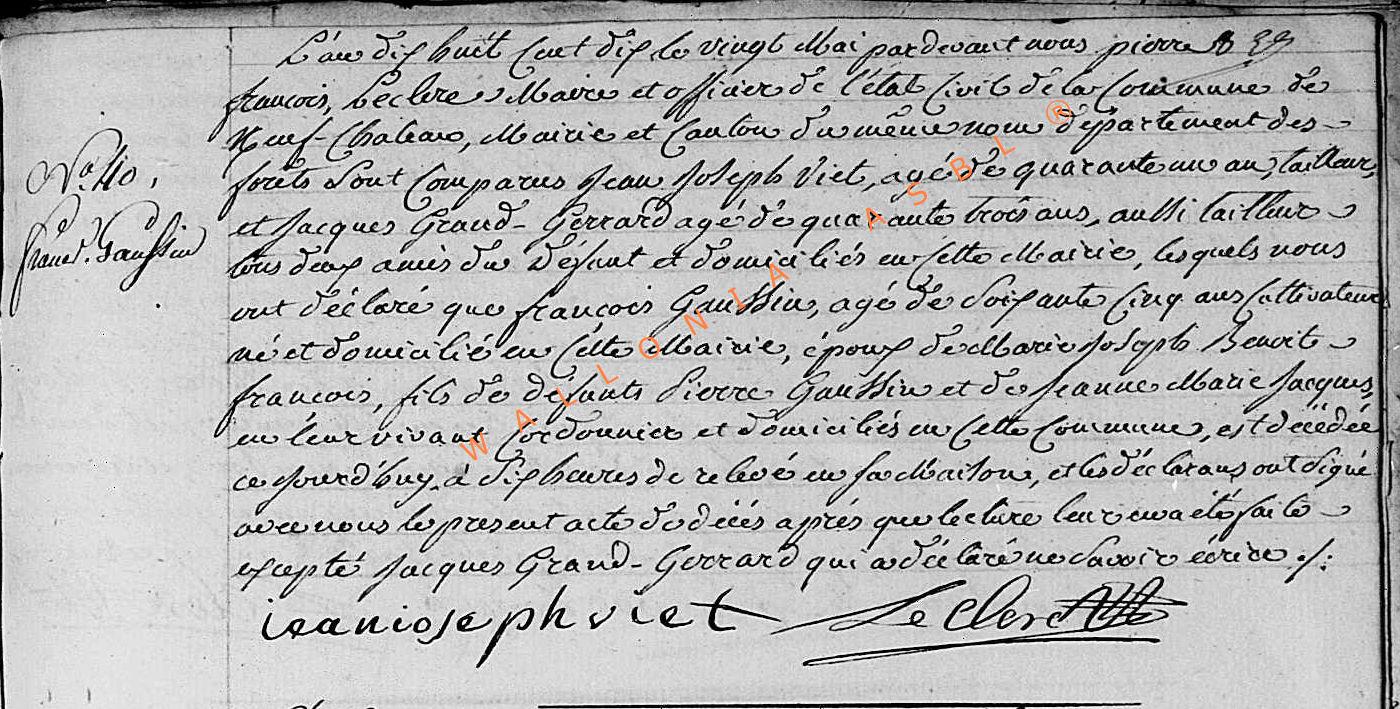 L'an dix huit Cent dix le vingt Mai pardevant nous pierre
françois, Leclere Maire et officier de l'état Civil de la Commune de
Neuf-Chateau, Mairie et Canton du même nom département des
forêts Sont Comparus Jean Joseph Viet, agé de quarante un an, tailleur,
N.o 40,
et Jacques Grand-Gerrard agé de quarante trois ans, aussi tailleur
franc. Gaussin
tous deux amis du Défunt et domiciliés en Cette Mairie, lesquels nous
ont déclaré que françois Gaussin, agé de Soixante Cinq ans Cultivateur
né et domicilié en Cette Mairie, époux de Marie Joseph Benoit
françois, fils de défunts Pierre Gaussin et de Jeanne Marie Jacques,
en leur vivant Cordonnier et domiciliés en Cette Commune, est décédée
ce jourd'huy, à dix heures de relevé en sa Maison, et les déclarans ont Signé
avec nous le present acte de décés aprés que lecture leur en a été faite
excepté Jacques Grand-Gerrard qui a déclaré ne Savoir écrire ./.
iean ioseph viet LeClere
WALLONIA ASBL ®